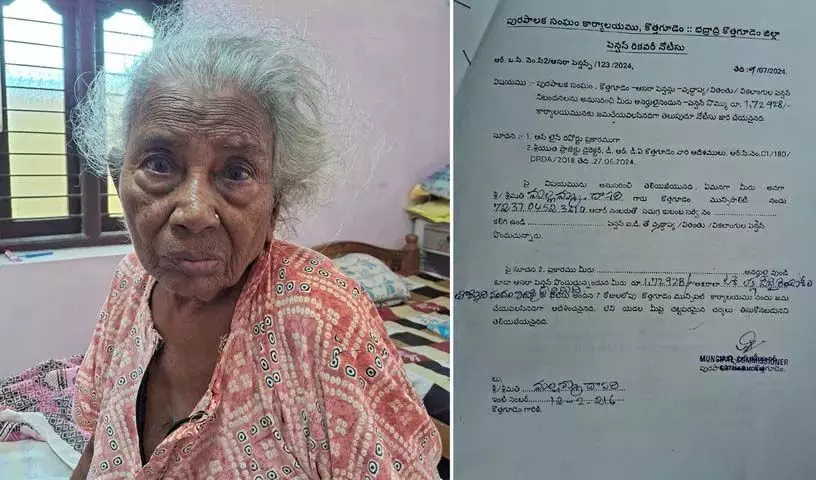 పురపాలక సంఘం కార్యాలయము, కొత్తగూడెం :: భద్రాద్రి కొత్తగూడెం జిల్లా
పెన్షన్ రికవరీ నోటీసు
ఆర్. ఒ.సి. నెం.సి2/ఆసరా పెన్షన్స్/123/2024, తేది: /07/2024.
విషయము :- పురపాలక సంఘన, కొత్తగూడెం -ఆసరా పెన్షన్లు -వృద్ధాప్య/వితంతు/ వికలాంగుల పెన్షన్
నిబంధనలను అనుసరించి మీరు అనర్హులైనందున -పెన్షన్ సొమ్ము రూ. 1,72,928/-
కార్యాలయమునకు జమచేయవలసినదిగా తెలుపుచూ నోటీసు జారీ చేయనైనది.
సూచన :- 1. ఆన్ లైన్ రిపోర్టు ప్రకారముగా
2.శ్రీయుత ప్రాజెక్టు డైరెక్టర్, డి. ఆర్. డి.ఏ కొత్తగూడెం వారి ఆదేశములు, ఆర్.సి.నం.C1/180/
DRDA/2018 తేది .27.06.2024.
పై విషయమును అనుసరించి తెలియజేయునది, ఏమనగా మీరు అనగా
శ్రీ/ శ్రీమతి మల్లమ్మ దాసరి గారు కొత్తగూడెం మున్సిపాలిటీ నందు
ఆధార్ నంబరుతో సమగ్ర కుటుంబ సర్వే నం
కలిగి ఉండి పెన్షన్ ఐ.డి. తో వృద్ధాప్య /వితంతు /వికలాంగుల పెన్షన్
పొందుచున్నారు.
పై సూచన 2. ప్రకారము మీరు అనర్హులై వుండి
కూడా ఆసరా పెన్షన్ పొందుచున్నందున మీరు రూ. 1,72,928/- అక్షరాలా ఒక లక్ష డెబ్బై రెండువేల
తొమ్మిది వందల ఇరువై ఎనిమిది నోటీసు అందిన 7 రోజులలోపు కొత్తగూడెం మున్సిపల్ కార్యాలయము నందు జమ
చేయవలసినదిగా ఆదేశించనైనది. లేని యెడల మీపై చట్టపరమైన చర్యలు తీసుకొనబడునని
తెలియజేయనైనది.
MUNICIPAL COMMISSIONER
పురపాలక కొత్తగూడెం.
టు,
శ్రీ/శ్రీమతి మల్లమ్మ దాసరి
ఇంటి నంబర్ 12-2-216
కొత్తగూడెం గారికి.